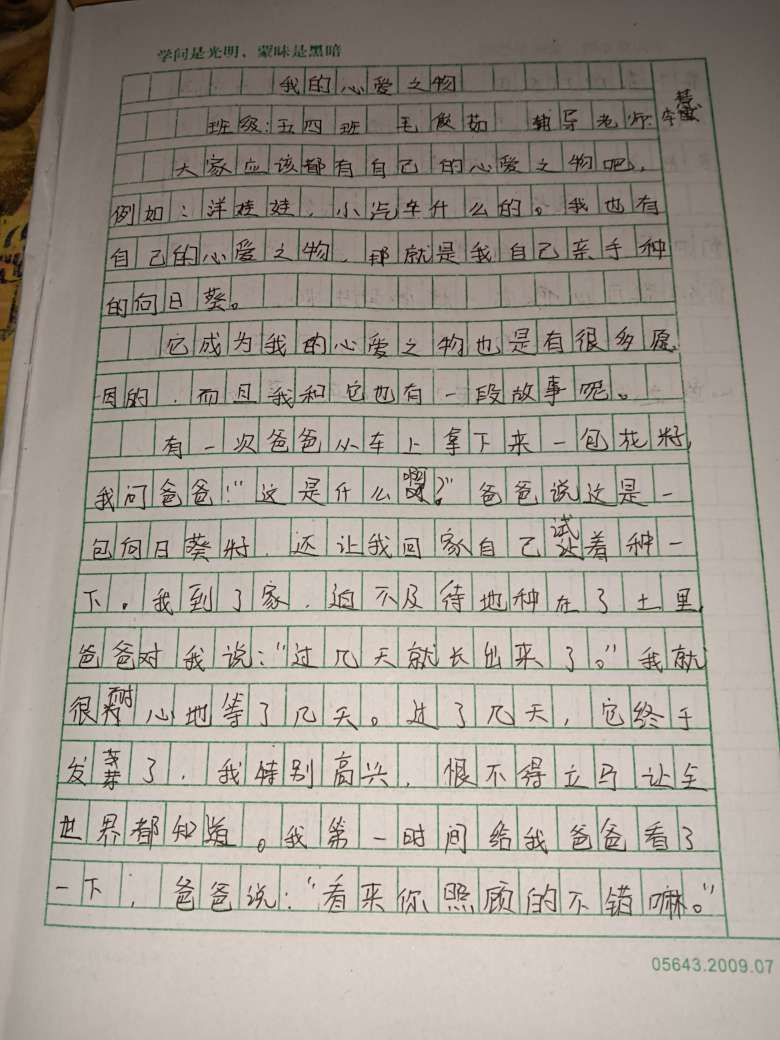 学问是光明，蒙昧是黑暗
我的心爱之物
班级：五四班 毛殷茹 辅导老师：李慧
大家应该都有自己的心爱之物吧，
例如：洋娃娃，小汽车什么的。我也有
自己的心爱之物，那就是我自己亲手种
的向日葵。
它成为我的心爱之物也是有很多原
因的，而且我和它也有一段故事呢。
有一次爸爸从车上拿下来一包花籽，
我问爸爸：“这是什么啊？”爸爸说这是一
包向日葵籽，还让我回家自己试着种一
下。我到了家，迫不及待地种在了土里，
爸爸对我说：“过几天就长出来了。”我就
很耐心地等了几天。过了几天，它终于
发芽了，我特别高兴，恨不得立马让全
世界都知道。我第一时间给我爸爸看了
一下，爸爸说：“看来你照顾的不错嘛。”
05643.2009.07